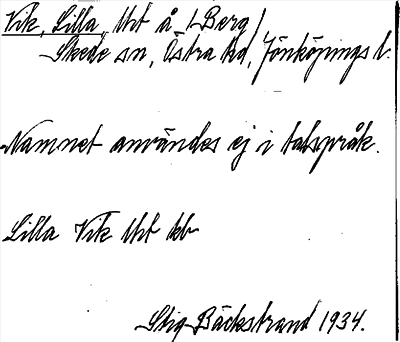 Vik, Lilla, lht å Berg/
Skede sn, Östra hd, Jönköpings l.
Namnet användes ej i talspråk.
Lilla Vik lht kb
Stig Bäckstrand 1934.